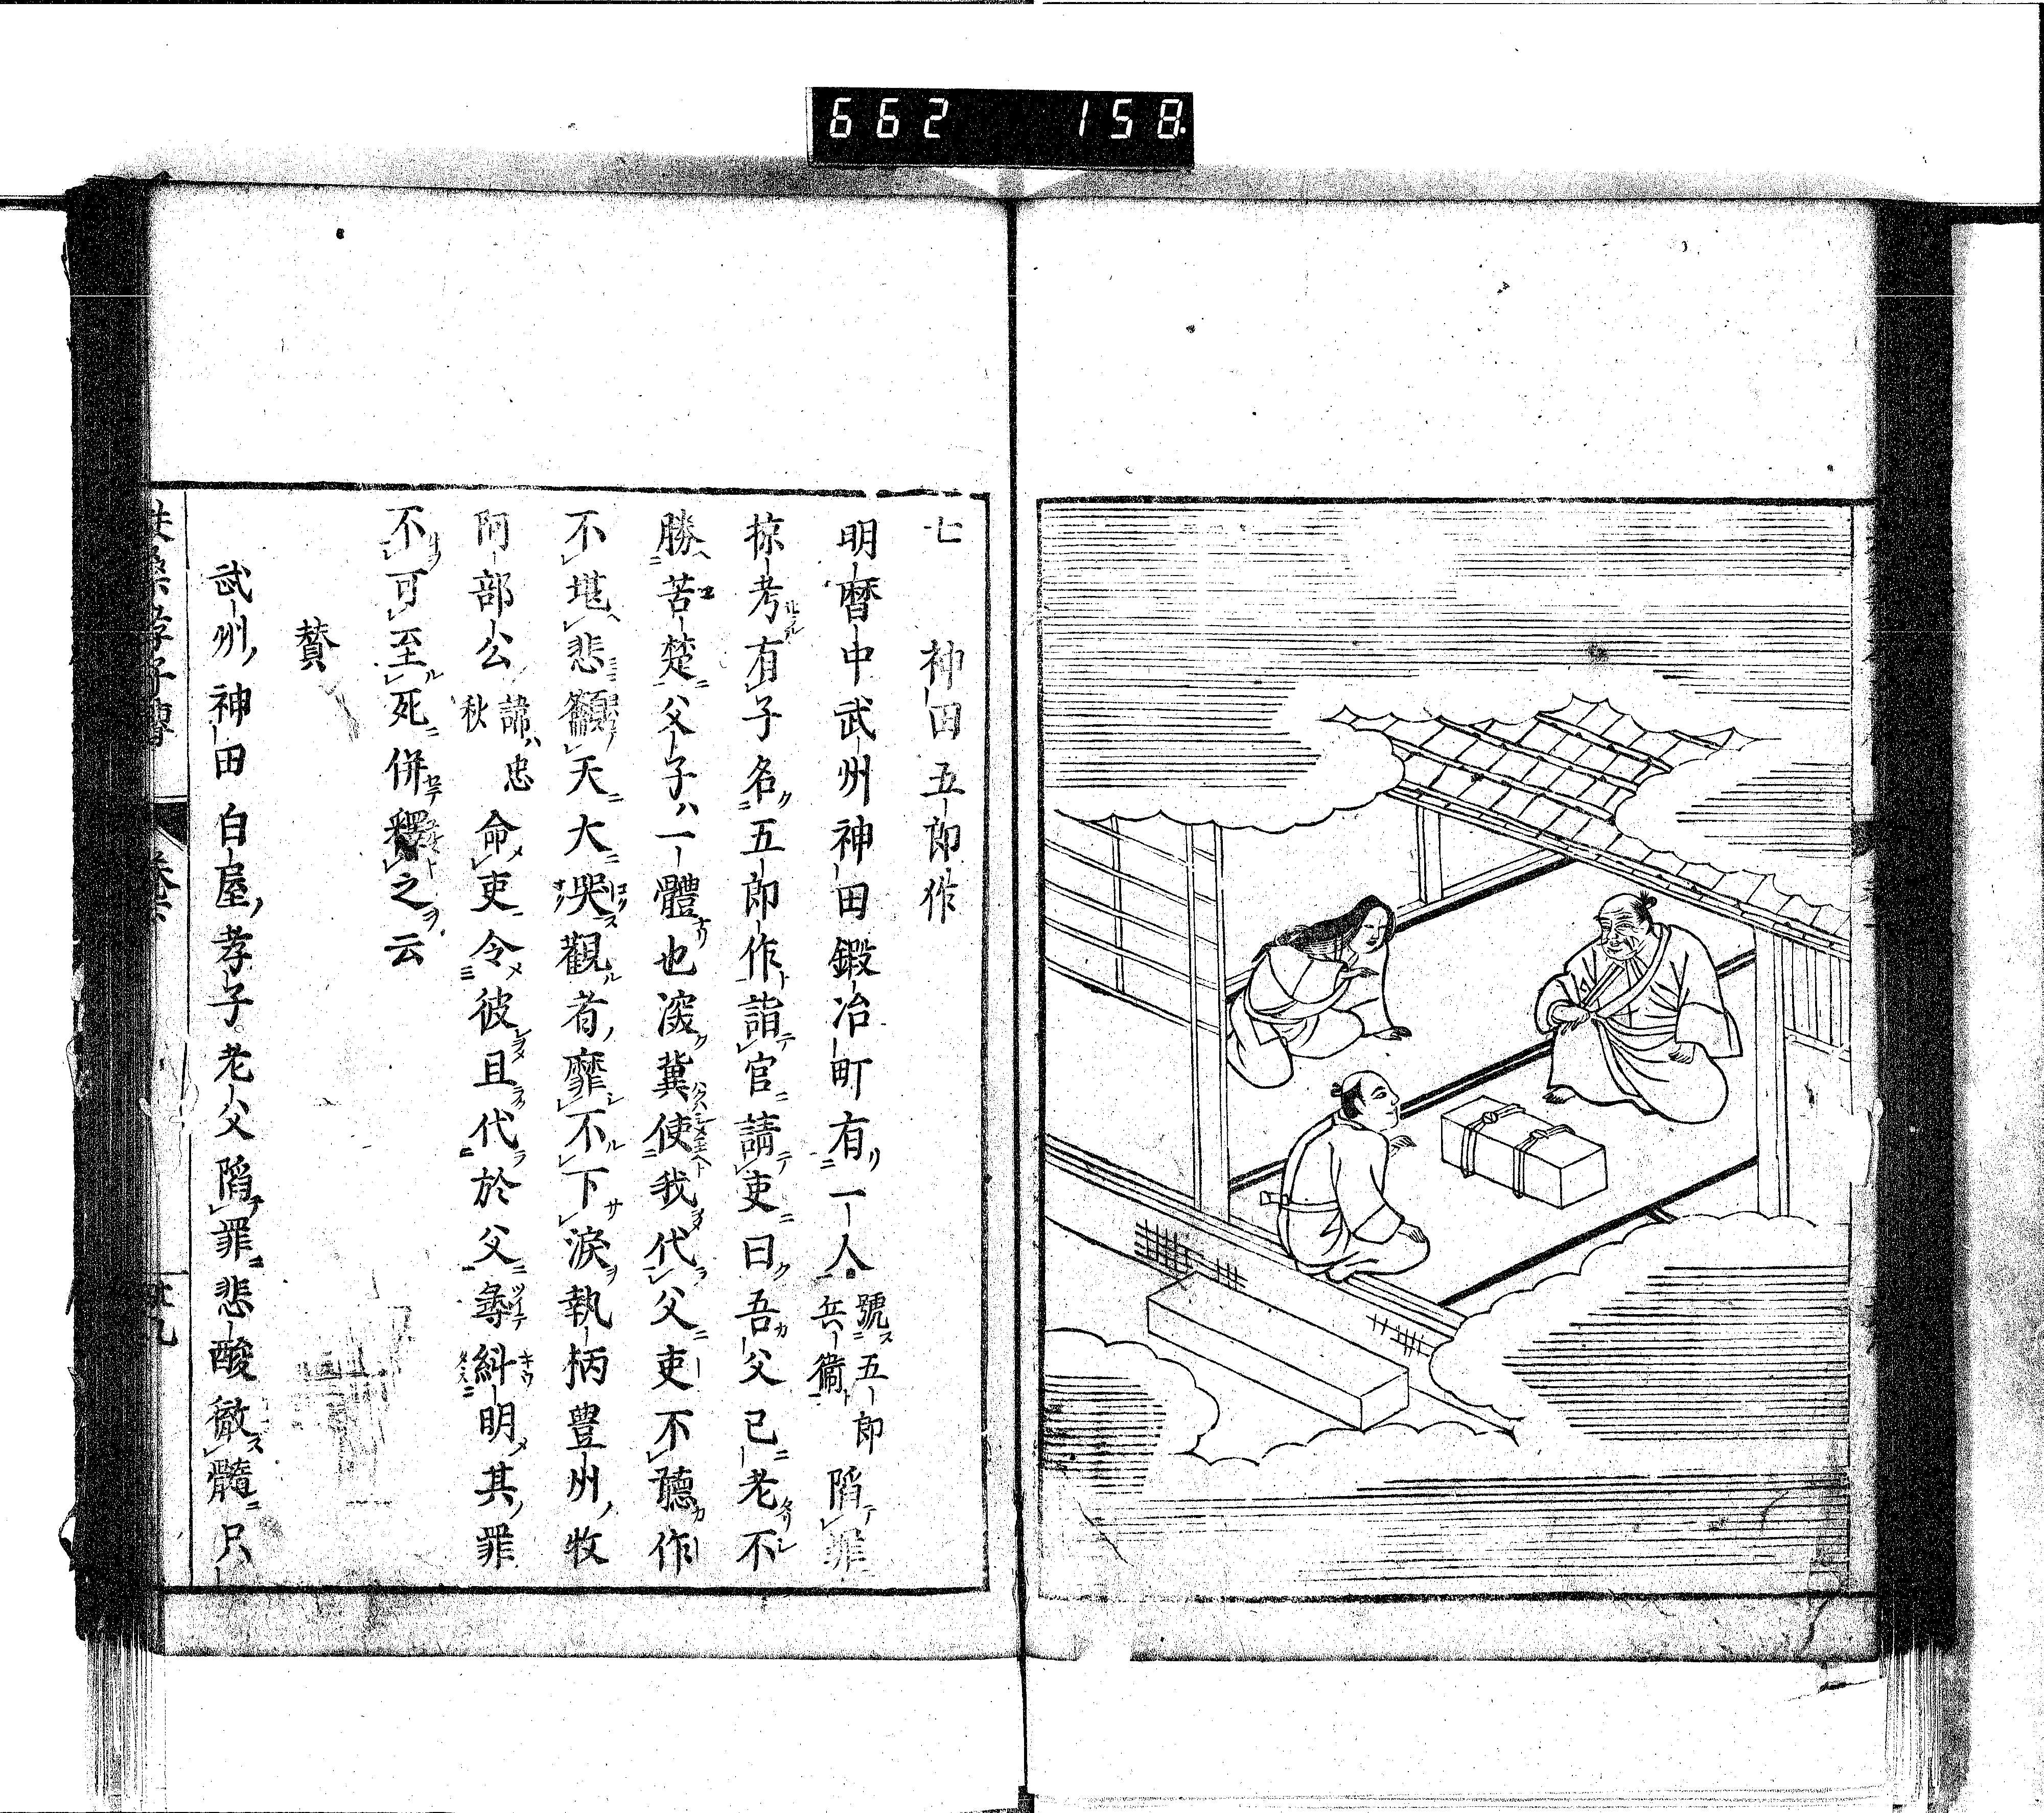 662 158
七 神田五郎作
明暦中武州神田鍛冶町有一人號五郎兵衞陷罪
掠考有子名五郎作詣官請吏曰吾父已老不
勝苦楚父子ハ一體也深冀使我代父吏不聽作
不堪悲籲天大哭觀者靡不下淚執柄豊州牧
阿部公諱忠秋命吏令彼且代於父尋糾明其罪
不可至死併釋之云
賛
武州神田白屋孝子老父陷罪悲酸徹髓只
扶桑孝子傳